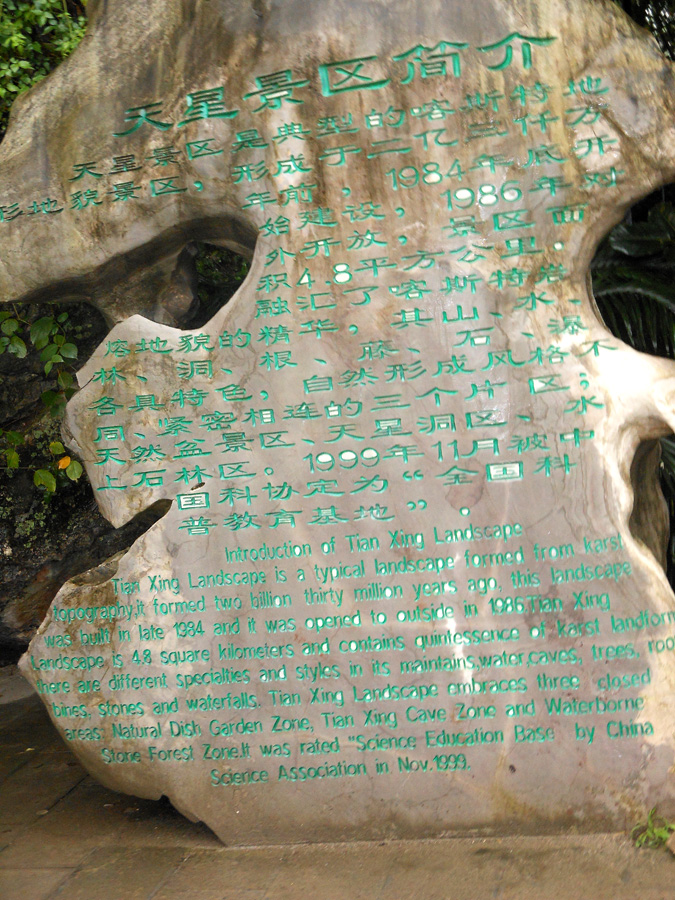 天星景区简介
天星景区是典型的喀斯特地
形地貌景区，形成于二亿三仟万
年前，1984年底开
始建设，1986年对
外开放，景区面
积4.8平方公里，
融汇了喀斯特岩
熔地貌的精华，其山、水、
林、洞、根、藤、石、瀑
各具特色，自然形成风格不
同、紧密相连的三个片区：
天然盆景区、天星洞区、水
上石林区。1999年11月被中
国科协定为“全国科
普教育基地”。
Introduction of Tian Xing Landscape
Tian Xing Landscape is a typical landscape formed from karst
topography,it formed two billion thirty million years ago, this landscape
was built in late 1984 and it was opened to outside in 1986,Tian Xing
Landscape is 4.8 square kilometers and contains quintessence of karst landform
there are different specialties and styles in its maintains,water,caves, trees, roo
bines, stones and waterfalls. Tian Xing Landscape embraces three closed
areas: Natural Dish Garden Zone, Tian Xing Cave Zone and Waterborne
Stone Forest Zone.It was rated "Science Education Base by China
Science Association in Nov.1999.